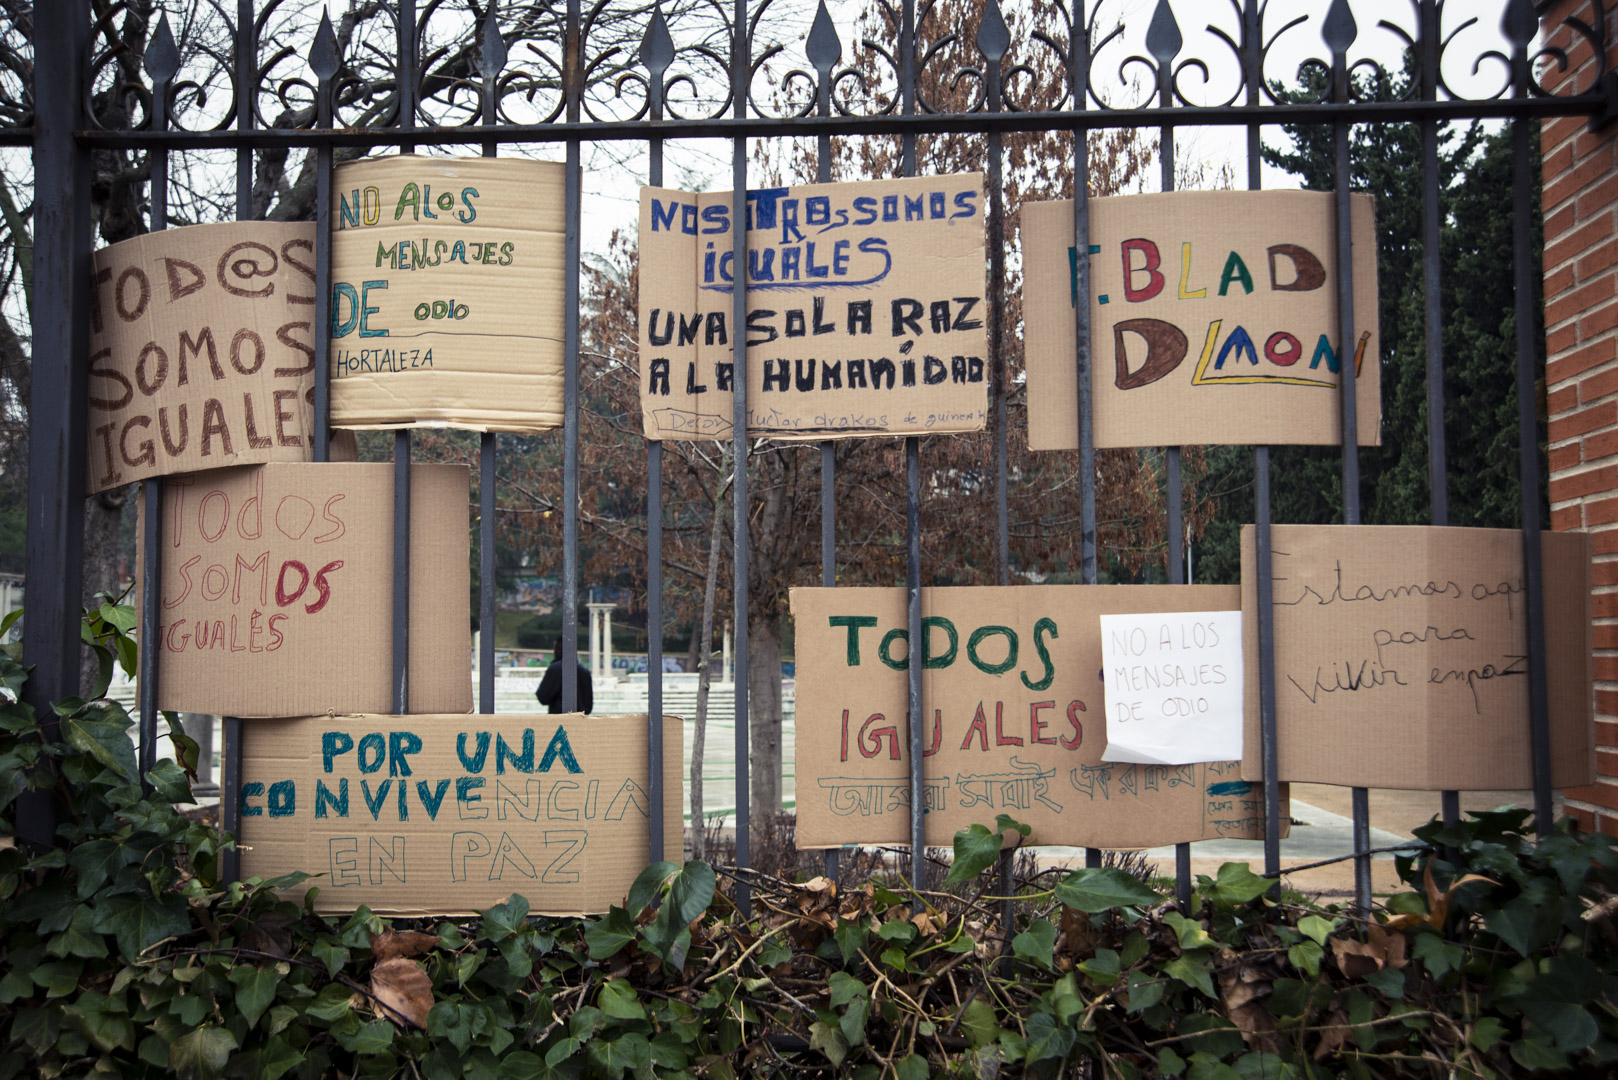 TOD@S
SOMOS
IGUALES
NO A LOS
MENSAJES
DE ODIO
HORTALEZA
NOSOTROS SOMOS
iGUALES
UNA SOLA RAZ
A LA HUMANIDAD
drakos de guinea
F. BLAD
DLMONi
Todos
SOMOS
IGUALES
TODOS
IGUALES
আমরা সবাই একরকম
NO A LOS
MENSAJES
DE ODIO
Estamos aqu
para
vivir en paz
POR UNA
CONVIVENCIA
EN PAZ